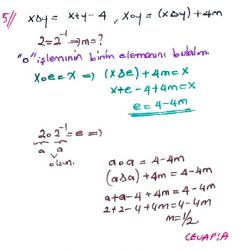 5// xΔy = x+y-4 , xoy = (xΔy)+4m
2=2⁻¹ => m=?
"o" işleminin birim elemanını bulalım
xoe=x => (xΔe)+4m=x
x+e-4+4m=x
e=4-4m
2o2⁻¹=e =>
a a
olsun.
aoa = 4-4m
(aΔa)+4m = 4-4m
a+a-4+4m = 4-4m
2+2-4+4m=4-4m
m=1/2
CEVAP:A